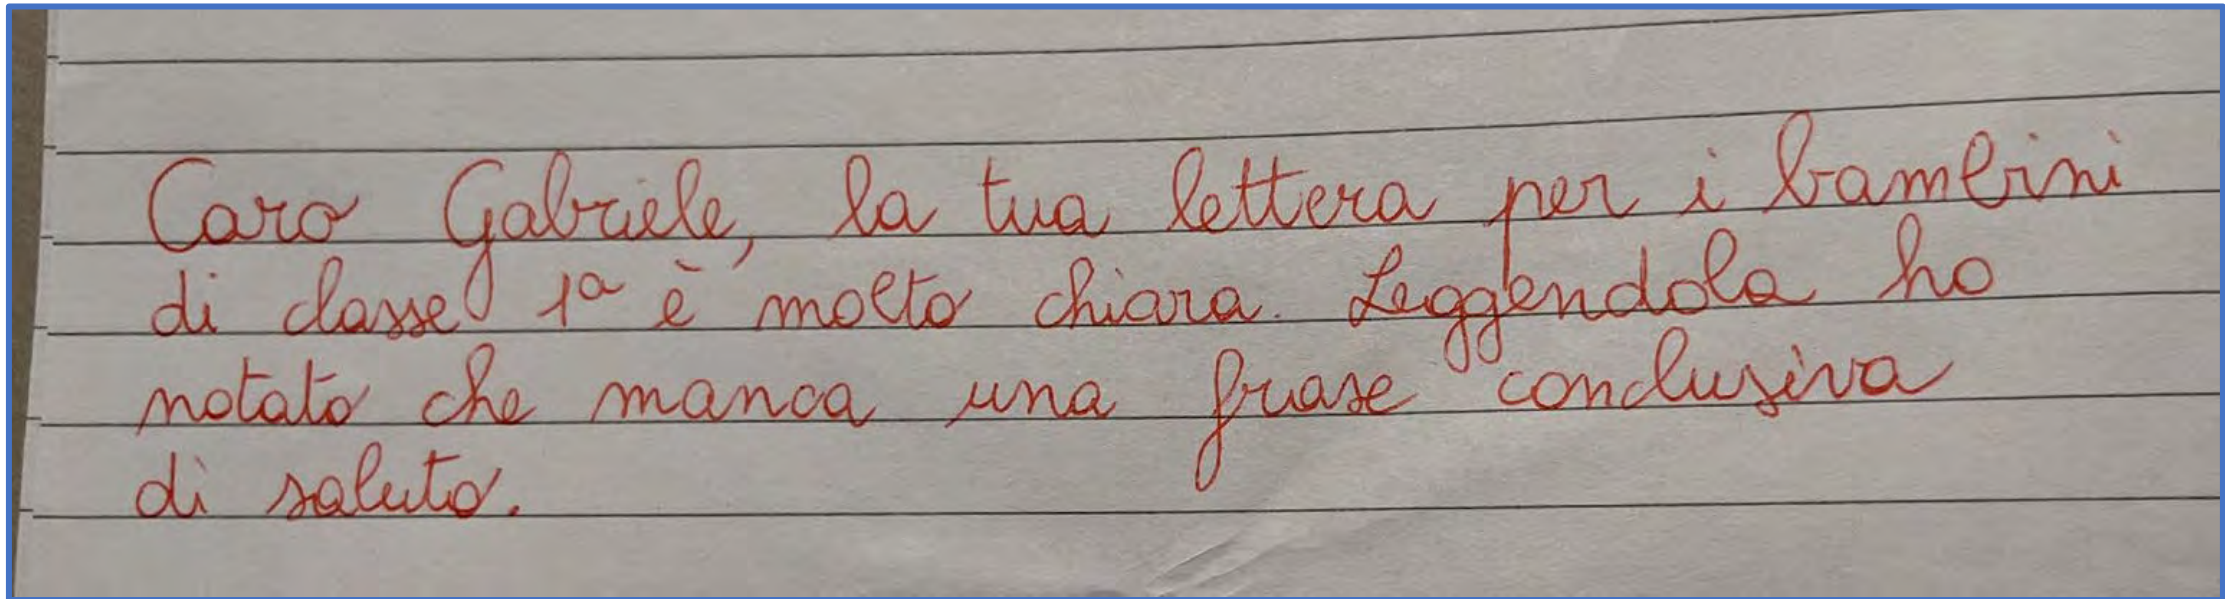 Caro Gabriele, la tua lettera per i bambini
di classe 1ª è molto chiara. Leggendola ho
notato che manca una frase conclusiva
di saluto.